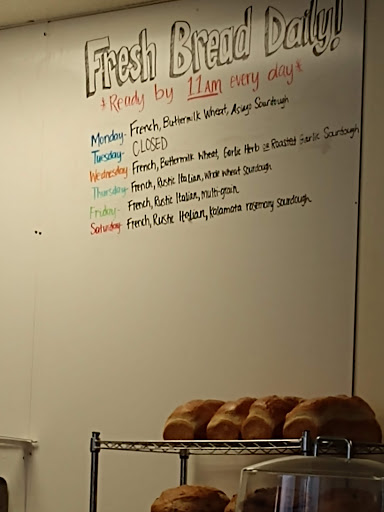 Fresh Bread Daily!
*Ready by 11AM every day*
Monday- French, Buttermilk Wheat, Asiago Sourdough
Tuesday- CLOSED
Wednesday French, Buttermilk Wheat, Garlic Herb or Roasted Garlic Sourdough
Thursday- French, Rustic Italian, Whole Wheat Sourdough
Friday- French, Rustic Italian, Multi-grain
Saturday- French, Rustic Italian, Kalamata rosemary sourdough